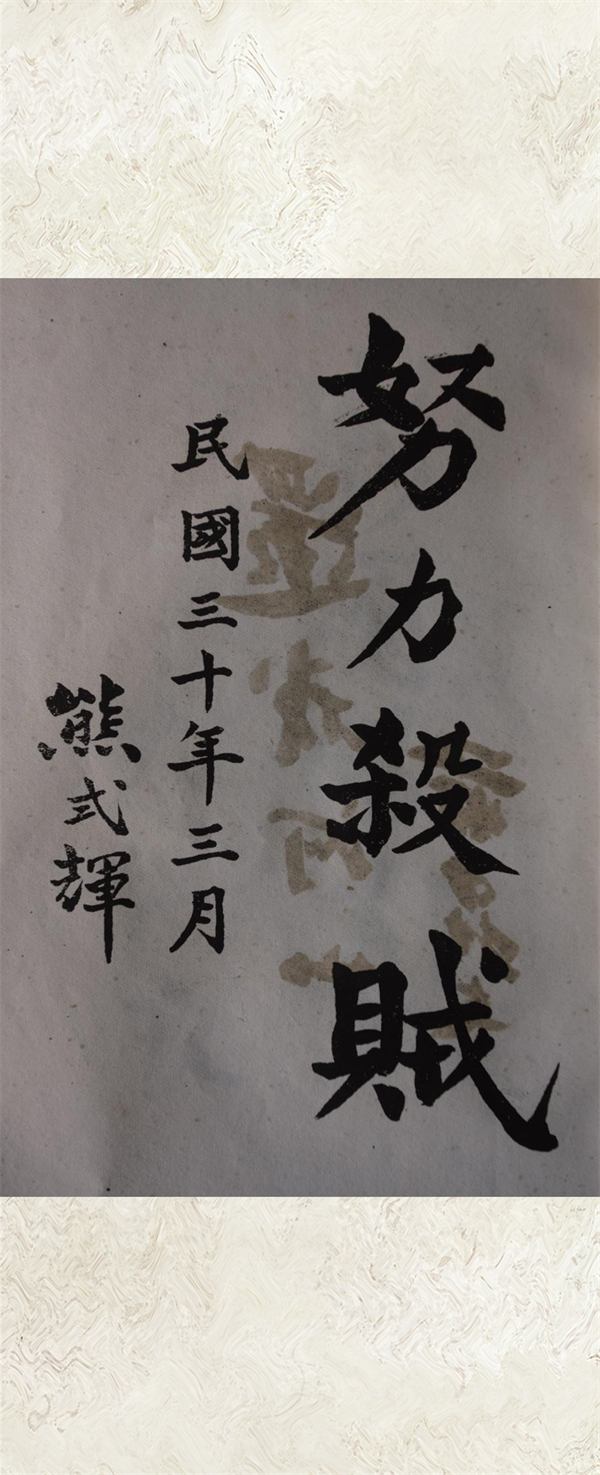 努力殺賊
民國三十年三月
熊式輝